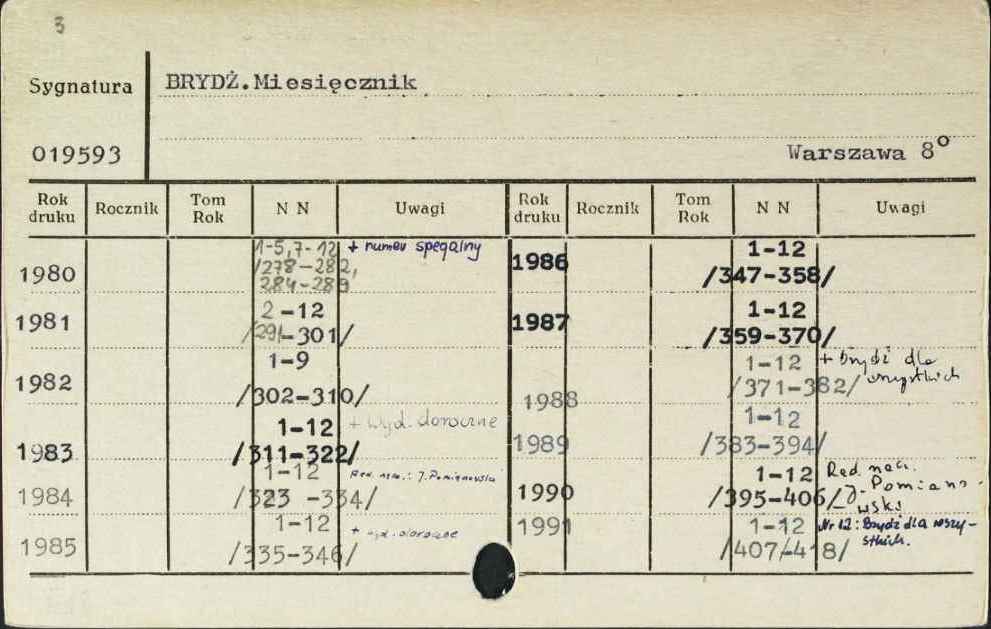 3
Sygnatura
BRYDŻ.Miesięcznik
019593
Warszawa 8°
Rok druku Rocznik Tom Rok N N Uwagi Rok druku Rocznik Tom Rok N N Uwagi
1980 1-5,7-12 + numer specjalny
/278-282,
284-289
1981 2-12
/291-301/
1982 1-9
/302-310/
1983 1-12 + wyd. doroczne
/311-322/
1984 1-12 Red. nacz.: J. Pomianowski
/323 -334/
1985 1-12 + wyd. doroczne
/335-346/
1986 1-12
/347-358/
1987 1-12
/359-370/
1988 1-12 + Brydż dla
/371-382/ wszystkich
1989 1-12
/383-394/
1990 1-12 Red. nacz.
/395-406/ J. Pomiano-
wski
1991 1-12 Nr 12: Brydż dla wszy-
/407-418/ stkich.